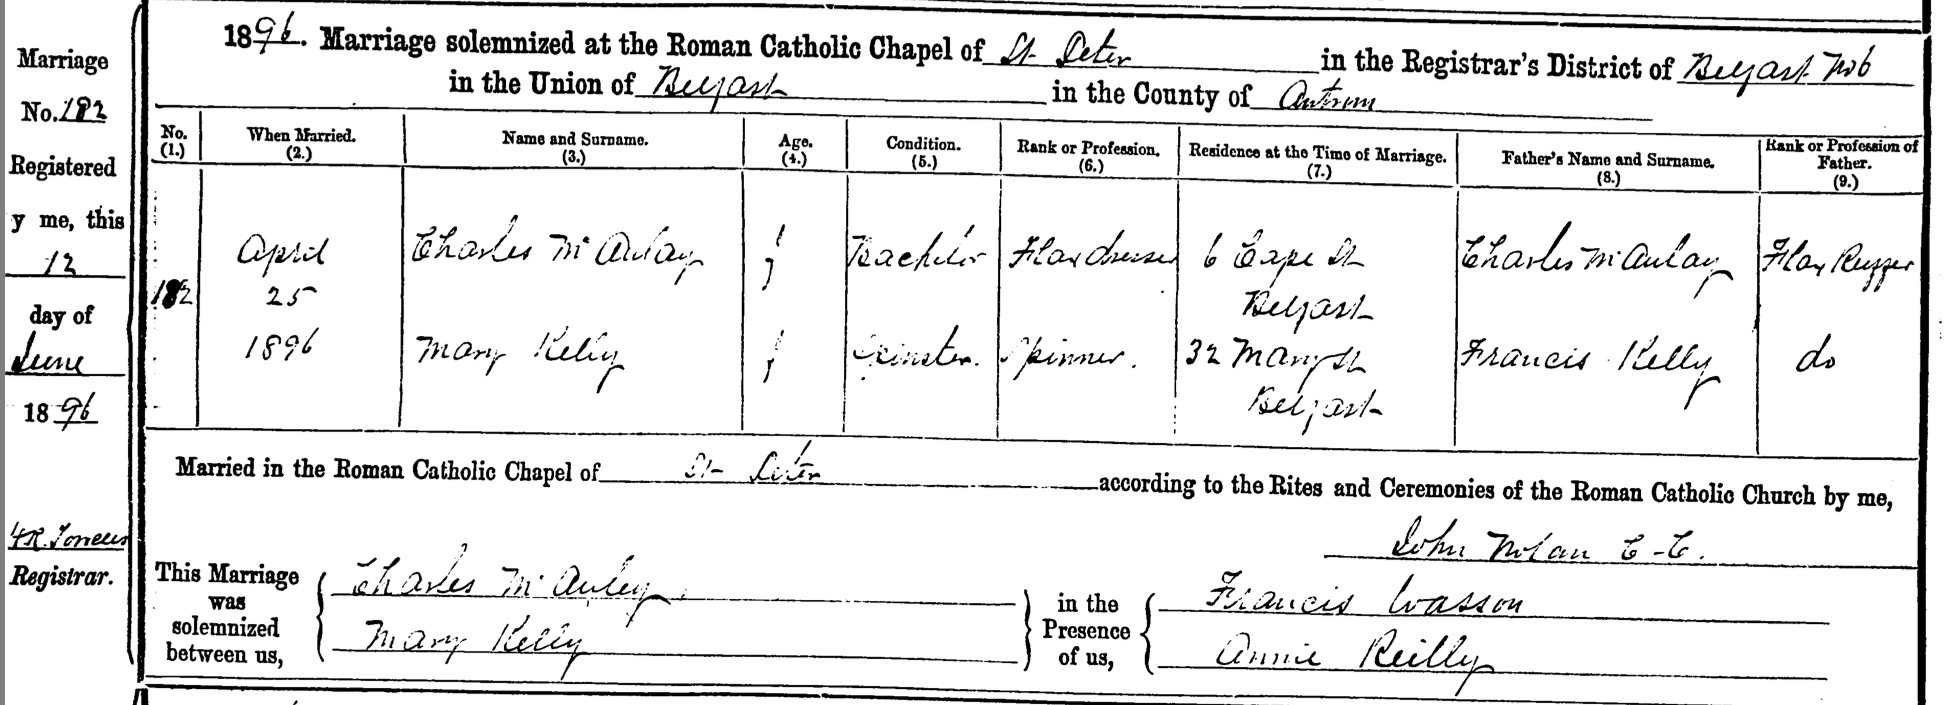 Marriage
No. 182
Registered
y me, this
12
day of
June
1896
Registrar.
1896. Marriage solemnized at the Roman Catholic Chapel of St Peter in the Registrar's District of Belfast No 6
in the Union of Belfast in the County of Antrim
No. (1.) When Married. (2.) Name and Surname. (3.) Age. (4.) Condition. (5.) Rank or Profession. (6.) Residence at the Time of Marriage. (7.) Father's Name and Surname. (8.) Rank or Profession of Father. (9.)
182 April 25 1896
Charles McAulay f Bachelor Flaxdresser 6 Cape St Belfast Charles McAulay Flax
Mary Kelly f Spinster. Spinner. 32 Mary St Belfast Francis Kelly do
Married in the Roman Catholic Chapel of St Peter according to the Rites and Ceremonies of the Roman Catholic Church by me,
John Nolan C-C.
This Marriage was solemnized between us,
Charles McAuley
Mary Kelly
in the Presence of us,
Francis Wasson
Annie Reilly